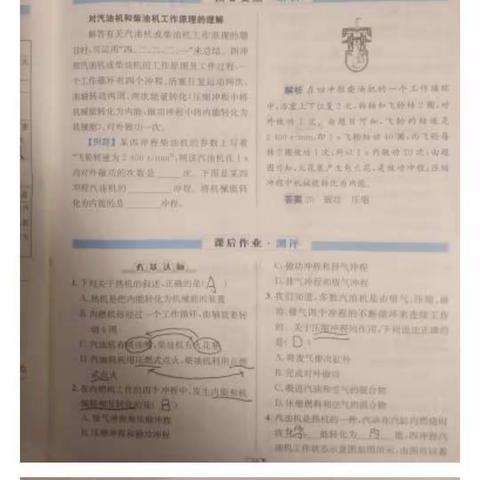 对汽油机和柴油机工作原理的理解
解答有关汽油机或柴油机工作原理的题
目时,可运用“四、二、二、二、一”来总结。四冲
程汽油机或柴油机的工作原理及工作过程,一
个工作循环有四个冲程,活塞往复运动两次,
曲轴转动两周,两次能量转化(压缩冲程中将
机械能转化为内能,做功冲程中将内能转化为
机械能),对外做功一次。
【例题】某四冲程柴油机的参数上写着
“飞轮转速为2 400 r/min”,则该汽油机在1 s
内对外做功的次数是 次。下图是某四
冲程汽油机的 冲程。将机械能转
化为内能的是 冲程。
解析 在四冲程柴油机的一个工作循环
中,活塞上下往复2次,曲轴和飞轮转2圈,对
外做功1次。由题目可知,飞轮的转速是
2 400 r/min,即1 s飞轮转动40圈,而飞轮每
转2圈做功1次,所以1 s内做功20次;由题
图可知,火花塞产生电火花,是做功冲程;压缩
冲程中机械能转化为内能。
答案 20 做功 压缩
课后作业·测评
1. 下列关于热机的叙述,正确的是( A )
A. 热机是把内能转化为机械能的装置
B. 内燃机每经过一个工作循环,曲轴就要转
动4周
C. 汽油机有喷油嘴,柴油机有火花塞
D. 汽油机采用压燃式点火,柴油机利用点燃
式点火
2. 在内燃机工作的四个冲程中,发生内能和机
械能相互转化的是( B )
A. 吸气冲程和压缩冲程
B. 压缩冲程和做功冲程
C. 做功冲程和排气冲程
D. 排气冲程和吸气冲程
3. 我们知道,多数汽油机是由吸气、压缩、做
功、排气四个冲程的不断循环来连续工作
的。关于压缩冲程的作用,下列说法正确的
是( D )
A. 将废气排出缸外
B. 完成对外做功
C. 吸进汽油和空气的混合物
D. 压缩燃料和空气的混合物
4. 汽油机是热机的一种,汽油在汽缸内燃烧时
将 化学 能转化为 内 能,四冲程汽
油机工作状态示意图如图所示,由图可以看